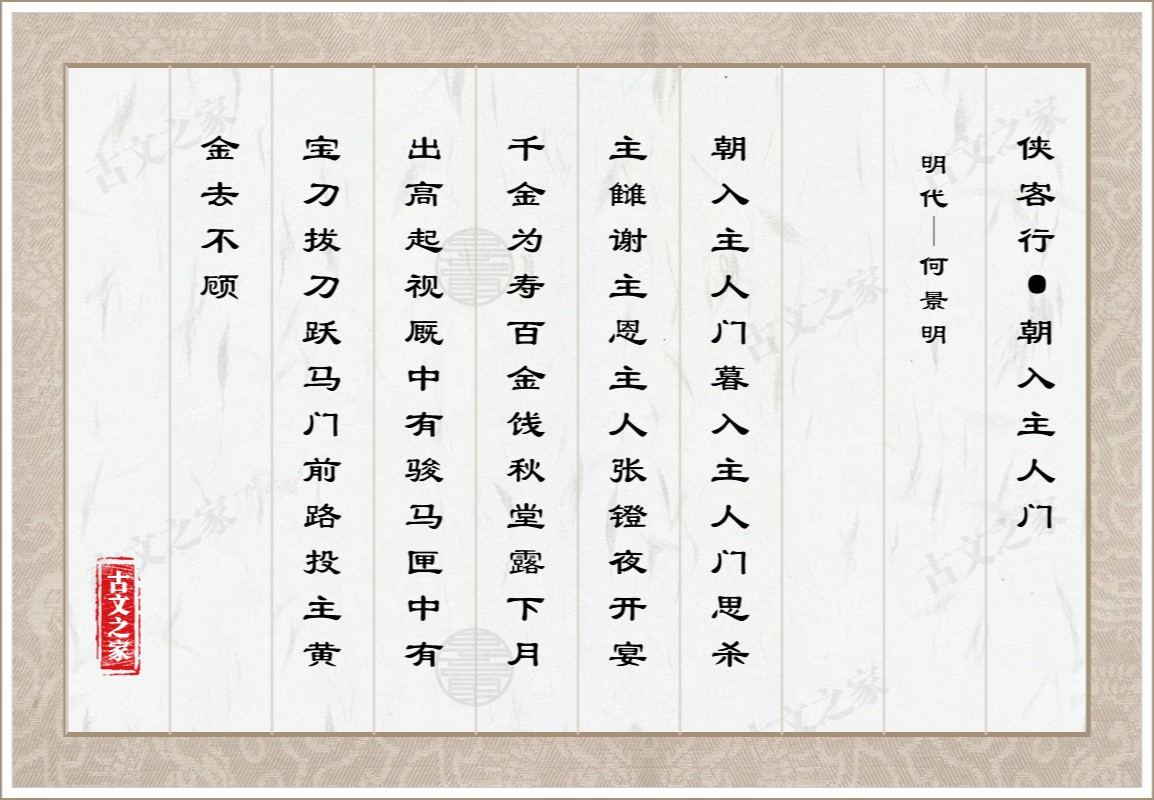 侠客行●朝入主人门
明代—何景明
朝入主人门暮入主人门思杀
主雠谢主恩主人张镫夜开宴
千金为寿百金饯秋堂露下月
出高起视厩中有骏马匣中有
宝刀拔刀跃马门前路投主黄
金去不顾
古文之家